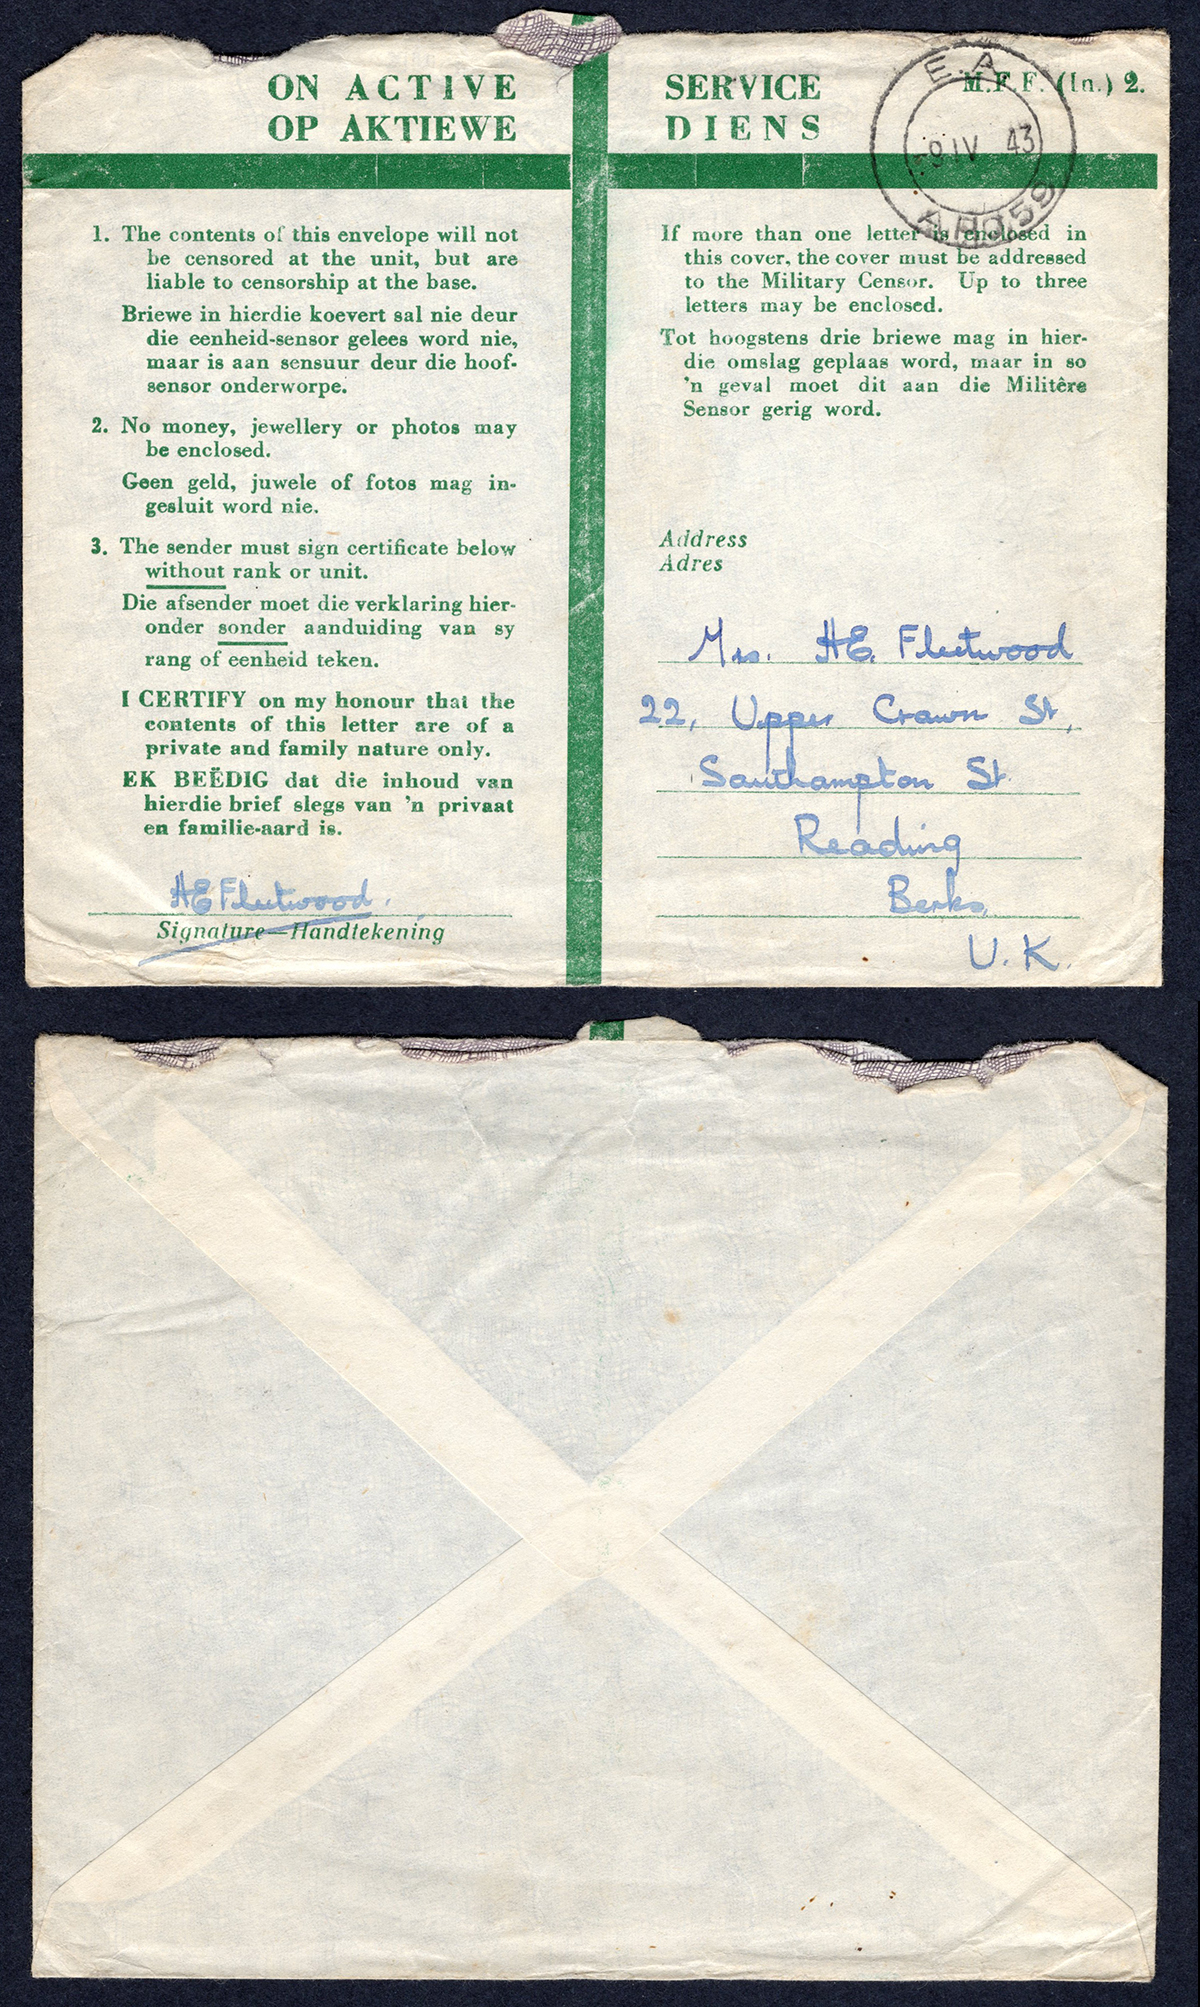 ON ACTIVE SERVICE
OP AKTIEWE DIENS
M.F.F. (In.) 2.
E A
9 IV 43
APO 59
1. The contents of this envelope will not
be censored at the unit, but are
liable to censorship at the base.
Briewe in hierdie koevert sal nie deur
die eenheid-sensor gelees word nie,
maar is aan sensuur deur die hoof-
sensor onderworpe.
2. No money, jewellery or photos may
be enclosed.
Geen geld, juwele of fotos mag in-
gesluit word nie.
3. The sender must sign certificate below
without rank or unit.
Die afsender moet die verklaring hier-
onder sonder aanduiding van sy
rang of eenheid teken.
I CERTIFY on my honour that the
contents of this letter are of a
private and family nature only.
EK BEËDIG dat die inhoud van
hierdie brief slegs van 'n privaat
en familie-aard is.
HE Fleetwood.
Signature—Handtekening
If more than one letter is enclosed in
this cover, the cover must be addressed
to the Military Censor. Up to three
letters may be enclosed.
Tot hoogstens drie briewe mag in hier-
die omslag geplaas word, maar in so
'n geval moet dit aan die Militêre
Sensor gerig word.
Address
Adres
Mrs. HE. Fleetwood
22, Upper Crown St,
Southampton St
Reading
Berks,
U.K.